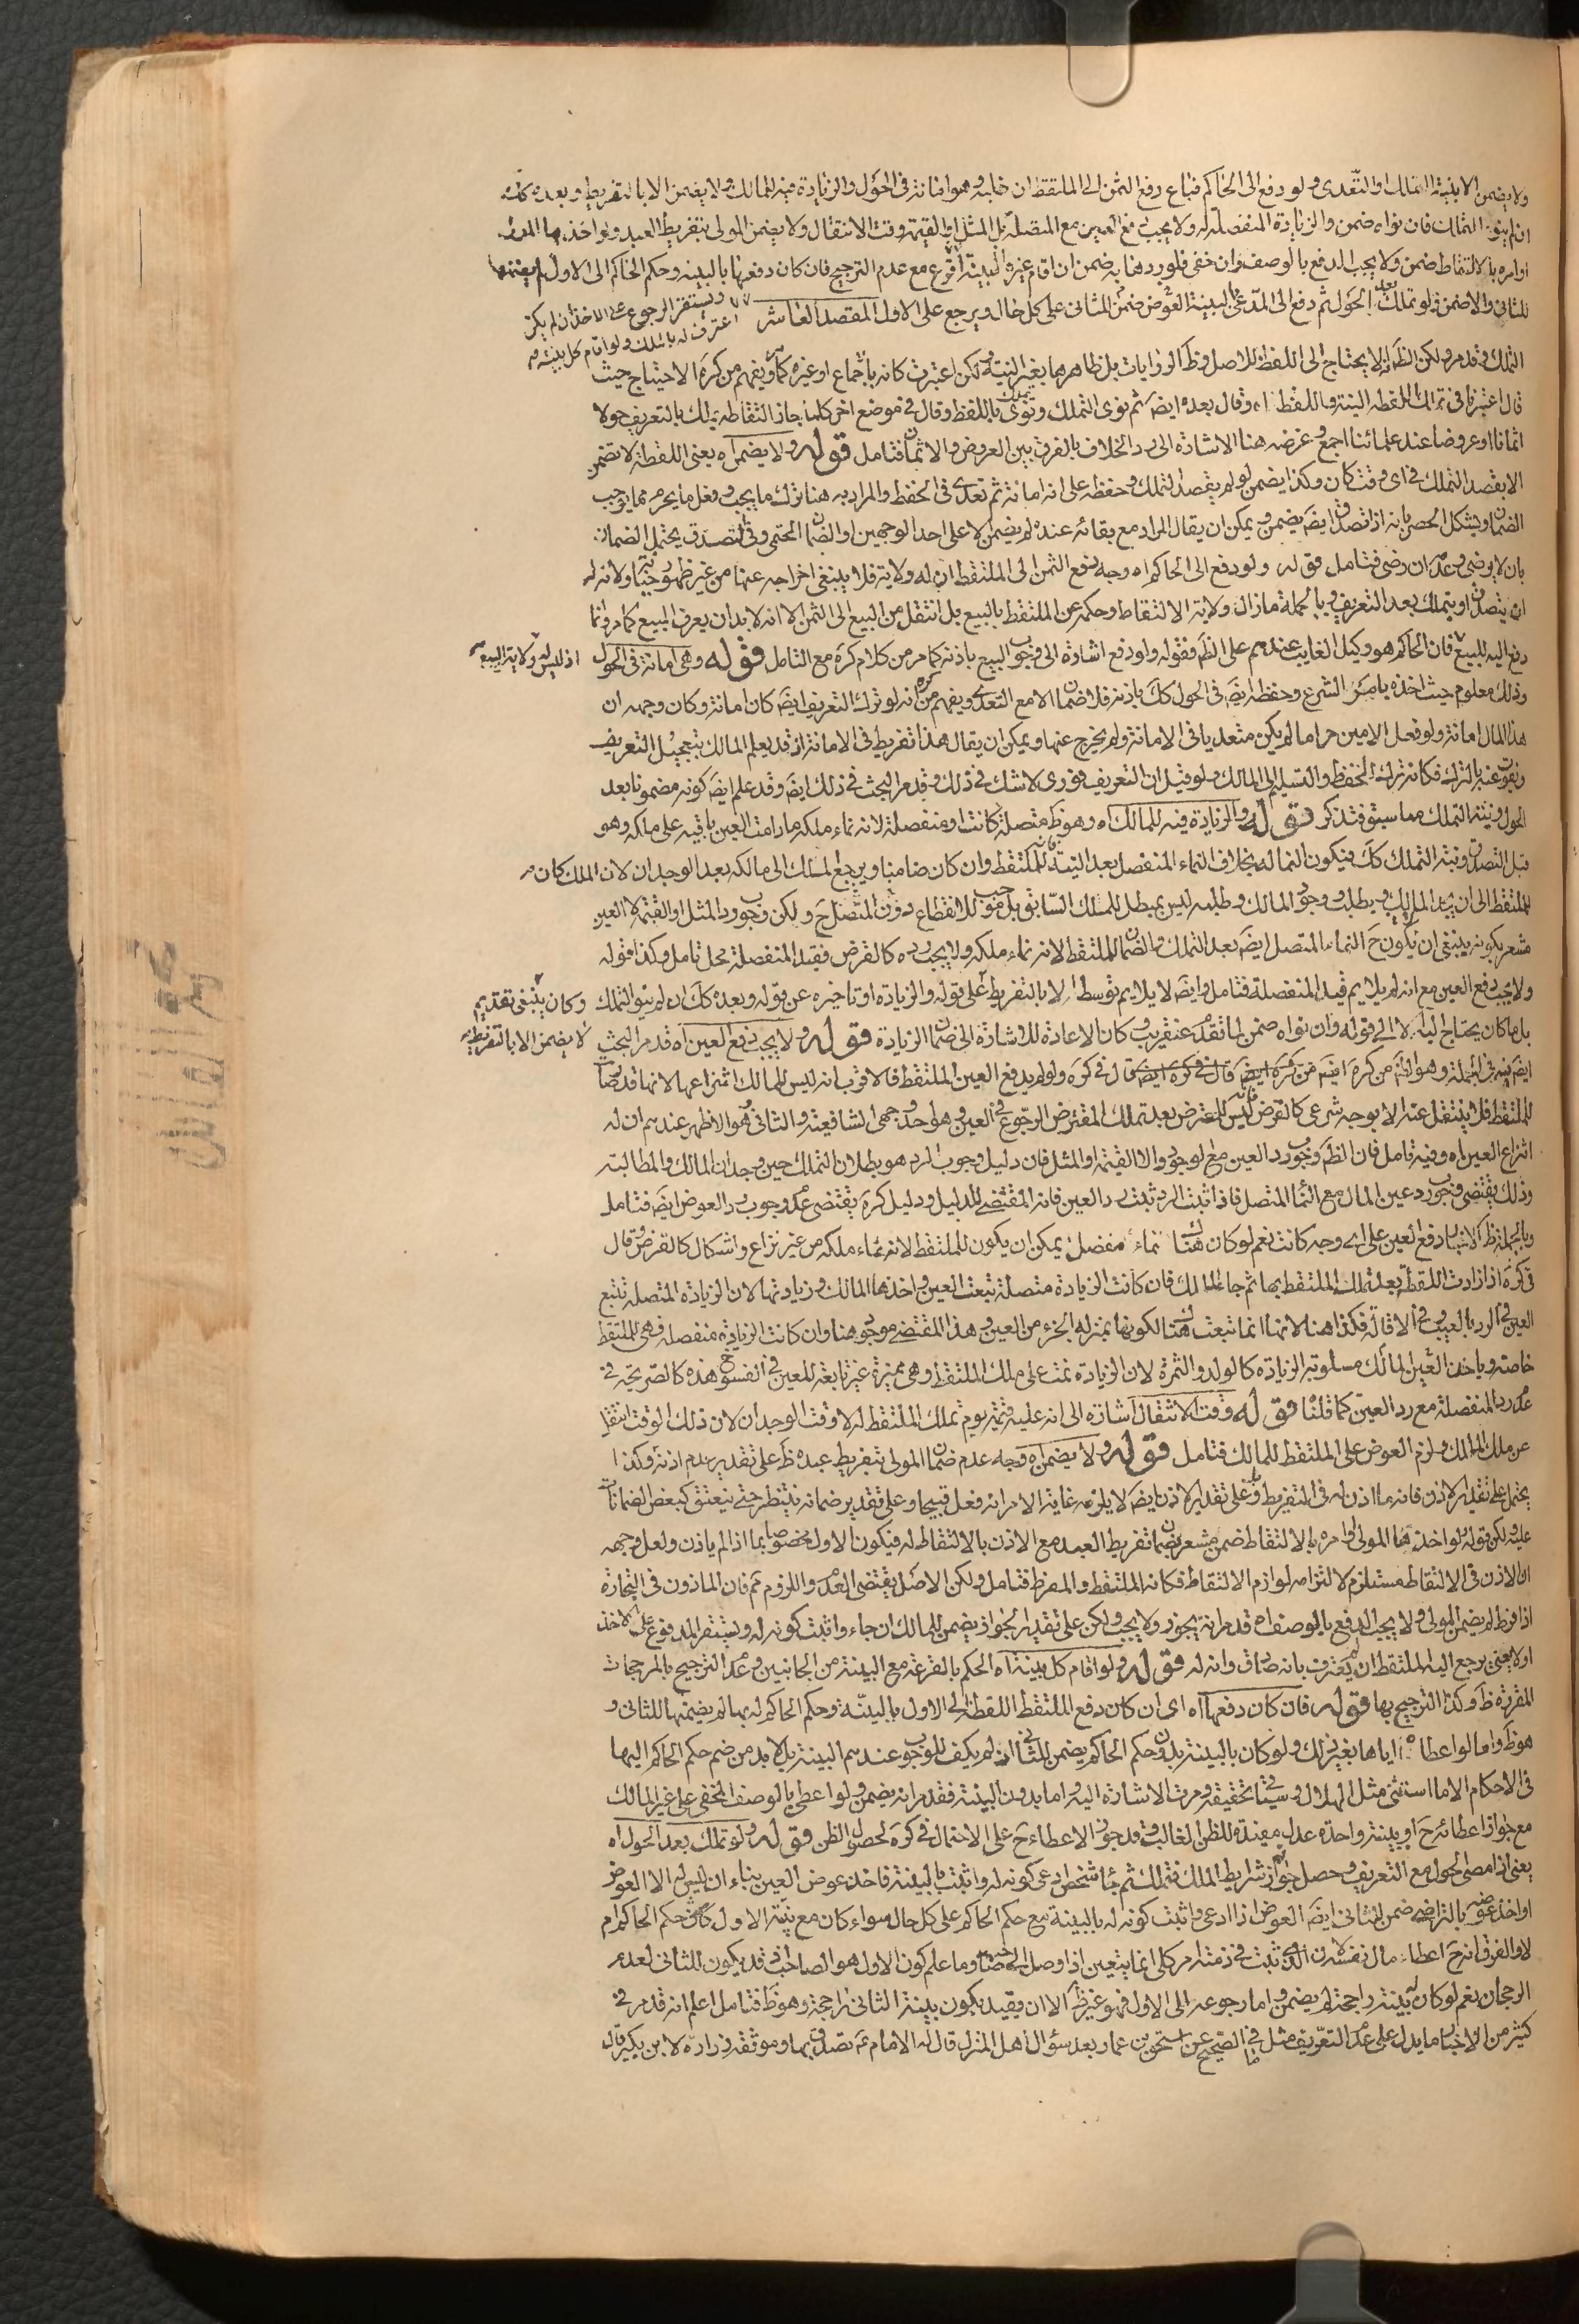 ولا يضمن الا بنية التملك او التعدى ولو دفع الى الحاكم فباع دفع الثمن الى الملتقط ان طلبه وهو امانة فى الحول والزيادة فيه للمالك ولا يضمن الا بالتفريط وبعده كك
ان لم ينو التملك فان نواه ضمن والزيادة المنفصلة له ولا يجب دفع العين مع المتصلة بل المثل او القيمة وقت الانتقال ولا يضمن المولى بتفريط العبد ولو اخذها المولى
او امره بالالتقاط ضمن ولا يجب الدفع بالوصف وان خفى فلو ردها به ضمن ان اقام غيره البينة اقرع مع عدم الترجيح فان كان دفعها بالبينه وحكم الحاكم الى الاول لم يضمنها
للثانى والا ضمن ولو تملك بعد الحول ثم دفع الى المدعى بالبينة العوض ضمن للثانى على كل حال ويرجع على الاول المقصد العاشر
ويستقر الرجوع على الاخذ ان لم يكن
اعترف له بالملك ولو اقام كل بينة
التملك قد مر ولكن الظ انه لا يحتاج الى اللفظ للاصل وظ الروايات بل ظاهرها بغير النية ولكن اعتبرت كانه باجماع او غيره كما يفهم من كره الاحتياج حيث
قال اعتبرنا فى تملك اللقطه النية واللفظ اه وقال بعده ايضَ ثم نوى التملك باللفظ وقال فى موضع اخر كلما جاز التقاطه يملك بالتعريف حولا
اثمانا او عروضا عند علمائنا اجمع وغرضه هنا الاشاره الى رد الخلاف بالفرق بين العروض والاثمان فتامل قوله ولا يضمن اه يعنى اللقطة لا تضمن
الا بقصد التملك فى اى وقت كان وكذا يضمن لو لم يقصد التملك وحفظه على انه امانة ثم تعدى فى الحفظ والمراد به هنا ترك ما يجب وفعل ما يحرم مما يوجب
الضمان ويشكل الحصر بانه اذا تصدق ايضَ يضمن ويمكن ان يقال المراد مع بقائه عنده لم يضمن الا على احد الوجهين او الضمان الحتمى وفى التصدق يحتمل الضمان
بان لا يرضى وعدمه ان رضى فتامل قوله ولو دفع الى الحاكم اه وجه دفع الثمن الى الملتقط ان له ولاية فلا ينبغى اخراجه عنها من غير ظهور خيانة ولانه له
ان يتصدق او يتملك بعد التعريف وبالجملة ما زال ولاية الالتقاط وحكمه عن الملتقط بالبيع بل انتقل من المبيع الى الثمن الا انه لا بد ان يعرف المبيع كما مر وانما
دفع اليه للبيع فان الحاكم هو وكيل الغايب عندهم على الظ فقوله ولو دفع اشارة الى وجوب البيع باذنه كما مر من كلام كره مع التامل قوله وهى امانة فى الحول
اذ ليس له ولاية البيع
وذلك معلوم حيث اخذه بامر الشرع وحفظه ايضَ فى الحول كك باذنه فلا ضمان الا مع التعدى ويفهم من كره انه لو ترك التعريف ايضَ كان امانة وكان وجهه ان
هذا المال امانة ولو فعل الامين حراما لم يكن متعديا فى الامانة ولم يخرج عنها ويمكن ان يقال هذا تفريط فى الامانة اذ قد يعلم المالك بتعجيل التعريف
ويفوت عنه بالترك فكانه ترك الحفظ والتسليم الى المالك ولو قيل ان التعريف فورى لا شك فى ذلك وقد مر البحث فى ذلك ايضَ وقد علم ايضَ كونه مضمونا بعد
الحول ونية التملك مما سبق فتذكر قوله والزيادة فيه للمالك اه وهو ظ متصلة كانت او منفصلة لانه نماء ملكه ما دامت العين باقيه على ملكه وهو
قبل التصدق ونية التملك كك فيكون النما له بخلاف النماء المنفصل بعد النية فانه للملتقط وان كان ضامنا ويرجع الملك الى مالكه بعد الوجدان لان الملك كان
للملتقط الى ان يجد المالك ويطلبه ووجود المالك وطلبه ليس بمبطل للملك السابق بل موجب للانقطاع دون المتصل ح ولكن وجوب رد المثل او القيمة لا العين
مشعر بكونه ينبغى ان يكون ح النماء المتصل ايضَ بعد التملك والضمان للملتقط لانه نماء ملكه ولا يجب رده كالقرض فقيد المنفصلة محل تامل وكذا قوله
ولا يجب دفع العين مع انه لم يلايم قيد المنفصلة فتامل وايضَ لا يلايم توسط الا بالتفريط على قوله والزيادة او تاخيره عن قوله وبعده كك ان لم ينو التملك
وكان ينبغى تقديم
لا يضمن الا بالتفريط
بل ما كان يحتاج اليه الا الى قوله وان نواه ضمن لما تقدم عنقريب وكان الاعادة للاشارة الى ضمان الزيادة قوله ولا يجب دفع العين اه قد مر البحث
ايضَ فيه فى الجملة وهو ايضَ من كره ايضَ قال فى كره ولو لم يدفع العين الملتقط فالاقرب انه ليس للمالك انتزاعها لانها قد صار
للملتقط فلا ينتقل عنه الا بوجه شرعى كالقرض فانه ليس للمقرض بعد تملك المقترض الرجوع فى العين وهو احد وجهى الشافعية والثانى وهو الاظهر عندهم ان له
انتزاع العين اه وفيه تامل فان الظ وجوب رد العين مع الوجود والا القيمة او المثل فان دليل وجوب الرد هو بطلان التملك حين وجدان المالك والمطالبته
وذلك يقتضى وجوب رد عين المال مع النما المتصل فاذا ثبت الرد ثبت رد العين فانه المقتضى للدليل ودليل كره يقتضى عدم وجوب رد العوض ايضَ فتامل
وبالجملة ظ الاخبار دفع العين على اى وجه كانت نعم لو كان هناك نماء منفصل يمكن ان يكون للملتقط لانه نماء ملكه من غير نزاع واشكال كالقرض وقال
فى كره اذا زادت اللقطة بعد تملك الملتقط بها ثم جاء المالك فان كانت الزيادة متصلة تبعت العين واخذها المالك وزيادتها لان الزيادة المتصلة تتبع
العين فى الرد بالعيب وفى الاقالة فكذا هنا لانها انما تبعت هناك لكونها بمنزلة الجزء من العين وهذا المقتضى موجود هنا وان كانت الزيادة منفصله فهى للملتقط
خاصته وياخذ العين المالك مسلوبة الزيادة كالولد والثمرة لان الزيادة نمت على ملك الملتقط وهى مميزة غير تابعة للعين فى الفسوخ هذه كالصريحة فى
عدم رد المنفصلة مع رد العين كما قلنا قوله وقت الانتقال اشارة الى انه عليه قيمة يوم تملك الملتقط له لا وقت الوجدان لان ذلك الوقت انتقل
عن ملك المالك ولزم العوض على الملتقط للمالك فتامل قوله ولا يضمن اه وجه عدم ضمان المولى بتفريط عبده ظ على تقدير عدم اذنه وكذا
يحتمل على تقدير الاذن فانه ما اذن له فى التفريط وعلى تقدير الاذن ايضَ لا يلزمه غاية الامر انه فعل قبيحا وعلى تقدير ضمانه ينتظر حتى ينعتق كبعض الضمانات
عليه ولكن قوله ولو اخذها المولى او امره بالالتقاط ضمن مشعر بضمان تفريط العبد مع الاذن بالالتقاط له فيكون الاول مخصوصا بما اذا لم ياذن ولعل وجهه
ان الاذن فى الالتقاط مستلزم لالتزامه لوازم الالتقاط فكانه الملتقط والمفرط فتامل ولكن الاصل يقتضى العدم واللزوم ثم فان الماذون فى التجارة
اذا فرط لم يضمن المولى ولا يجب الدفع بالوصف اه قد مر انه يجوز ولا يجب ولكن على تقدير الجواز يضمن للمالك ان جاء واثبت كونه له ويستقر المدفوع على الاخذ
اولا يعنى يرجع اليه الملتقط ان لم يعترف بانه صادق وانه له قوله ولو اقام كل بينة اه الحكم بالقرعة مع البينة من الجانبين وعدم الترجيح بالمرجحات
المقررة ظ وكذا الترجيح بها قوله فان كان دفعها اه اى ان كان دفع الملتقط اللقطة الى الاول بالبينة وحكم الحاكم له بها لم يضمنها للثانى و
هو ظ واما لو اعطاه اياها بغير ذلك ولو كان بالبينة بدون حكم الحاكم يضمن للثانى اذ لم يكف للوجوب عندهم البينة بل لا بد من ضم حكم الحاكم اليها
فى الاحكام الا ما استثنى مثل الهلال وسيجئ تحقيقه ومرت الاشارة اليه واما بدون البينة فقد مر انه يضمن ولو اعطى بالوصف الخفى على غير المالك
مع جواز اعطائه ح او ببينة واحدة عدل مفيدة للظن الغالب وقد جوز الاعطاء ح على الاحتمال فى كره لحصول الظن قوله ولو تملك بعد الحول اه
يعنى اذا مضى الحول مع التعريف وحصل جواز شرايط الملك فتملك ثم جاء شخص ادعى كونه له واثبت بالبينة فاخذ عوض العين بناء ان ليس له الا العوض
او اخذ عوضه بالتراضى ضمن للثانى ايضَ العوض اذا ادعى واثبت كونه له بالبينة مع حكم الحاكم على كل حال سواء كان مع بينة الاول كان حكم الحاكم ام
لا والفرق انه ح اعطاء مال نفسه لان الذى ثبت فى ذمته امر كلى انما يتعين اذا وصل الى صاحبه وما علم كون الاول هو الصاحب وقد يكون للثانى لعدم
الرجحان نعم لو كان له بينة راجحة لم يضمن واما رجوعه الى الاول فهو غير ظ الا ان يقيد بكون بينة الثانى راجحة وهو ظ فتامل اعلم انه قد مر فى
كثير من الاخبار ما يدل على عدم التعريف مثل ما فى الصحيح عن اسحق بن عمار بعد سؤال اهل المنزل قال له الامام عم تصدق بها وموثقه زرارة لابن بكير قال